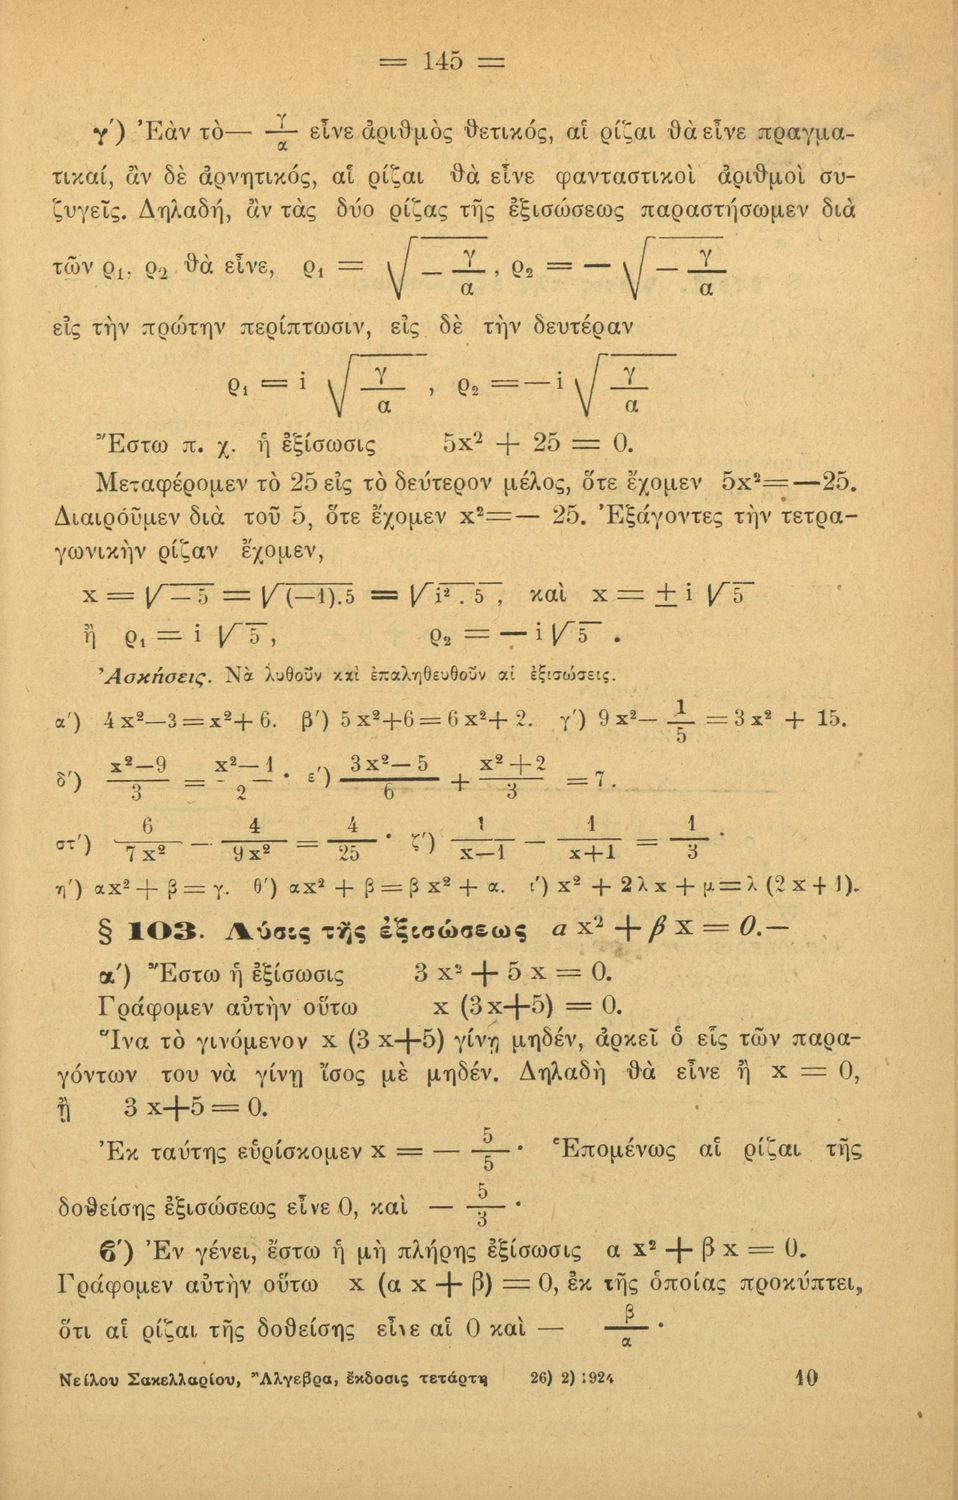 = 145 =
γ') Ἐὰν τὸ— γ/α εἶνε ἀριθμὸς θετικός, αἱ ρίζαι θὰ εἶνε πραγμα-
τικαί, ἂν δὲ ἀρνητικός, αἱ ρίζαι θὰ εἶνε φανταστικοὶ ἀριθμοὶ συ-
ζυγεῖς. Δηλαδή, ἂν τὰς δύο ρίζας τῆς ἐξισώσεως παραστήσωμεν διὰ
τῶν ρ₁, ρ₂ θὰ εἶνε, ρ₁ = √(— γ/α), ρ₂ = — √(— γ/α)
εἰς τὴν πρώτην περίπτωσιν, εἰς δὲ τὴν δευτέραν
ρ₁ = i √(γ/α) , ρ₂ = — i √(γ/α)
Ἔστω π. χ. ἡ ἐξίσωσις 5x² + 25 = 0.
Μεταφέρομεν τὸ 25 εἰς τὸ δεύτερον μέλος, ὅτε ἔχομεν 5x²=—25.
Διαιροῦμεν διὰ τοῦ 5, ὅτε ἔχομεν x²=— 25. Ἐξάγοντες τὴν τετρα-
γωνικὴν ρίζαν ἔχομεν,
x = √—5 = √(—1).5 = √i² . 5 , καὶ x = ± i √5
ἢ ρ₁ = i √5 , ρ₂ = — i √5 .
Ἀσκήσεις. Νὰ λυθοῦν καὶ ἐπαληθευθοῦν αἱ ἐξισώσεις.
α') 4x²—3=x²+6. β') 5x²+6=6x²+2. γ') 9x²— 1/5 =3x² + 15.
δ') x²—9/3 = x²—1/2 . ε') 3x²—5/6 + x²+2/3 =7.
στ') 6/7x² — 4/9x² = 4/25 . ζ') 1/x—1 — 1/x+1 = 1/3 .
η') αx²+β=γ. θ') αx² + β=βx²+α. ι') x² + 2λx+μ=λ(2x+1).
§ 103. Λύσις τῆς ἐξισώσεως α x² + β x = 0.—
α') Ἔστω ἡ ἐξίσωσις 3 x² + 5 x = 0.
Γράφομεν αὐτὴν οὕτω x (3x+5) = 0.
Ἵνα τὸ γινόμενον x (3 x+5) γίνῃ μηδέν, ἀρκεῖ ὁ εἷς τῶν παρα-
γόντων του νὰ γίνῃ ἴσος μὲ μηδέν. Δηλαδὴ θὰ εἶνε ἢ x = 0,
ἢ 3 x+5 = 0.
Ἐκ ταύτης εὑρίσκομεν x = — 5/5 . Ἑπομένως αἱ ρίζαι τῆς
δοθείσης ἐξισώσεως εἶνε 0, καὶ — 5/3 .
β') Ἐν γένει, ἔστω ἡ μὴ πλήρης ἐξίσωσις α x² + β x = 0.
Γράφομεν αὐτὴν οὕτω x (α x + β) = 0, ἐκ τῆς ὁποίας προκύπτει,
ὅτι αἱ ρίζαι τῆς δοθείσης εἶνε αἱ 0 καὶ — β/α .
Νείλου Σακελλαρίου, Ἄλγεβρα, ἔκδοσις τετάρτη 26) 2) 1924 10